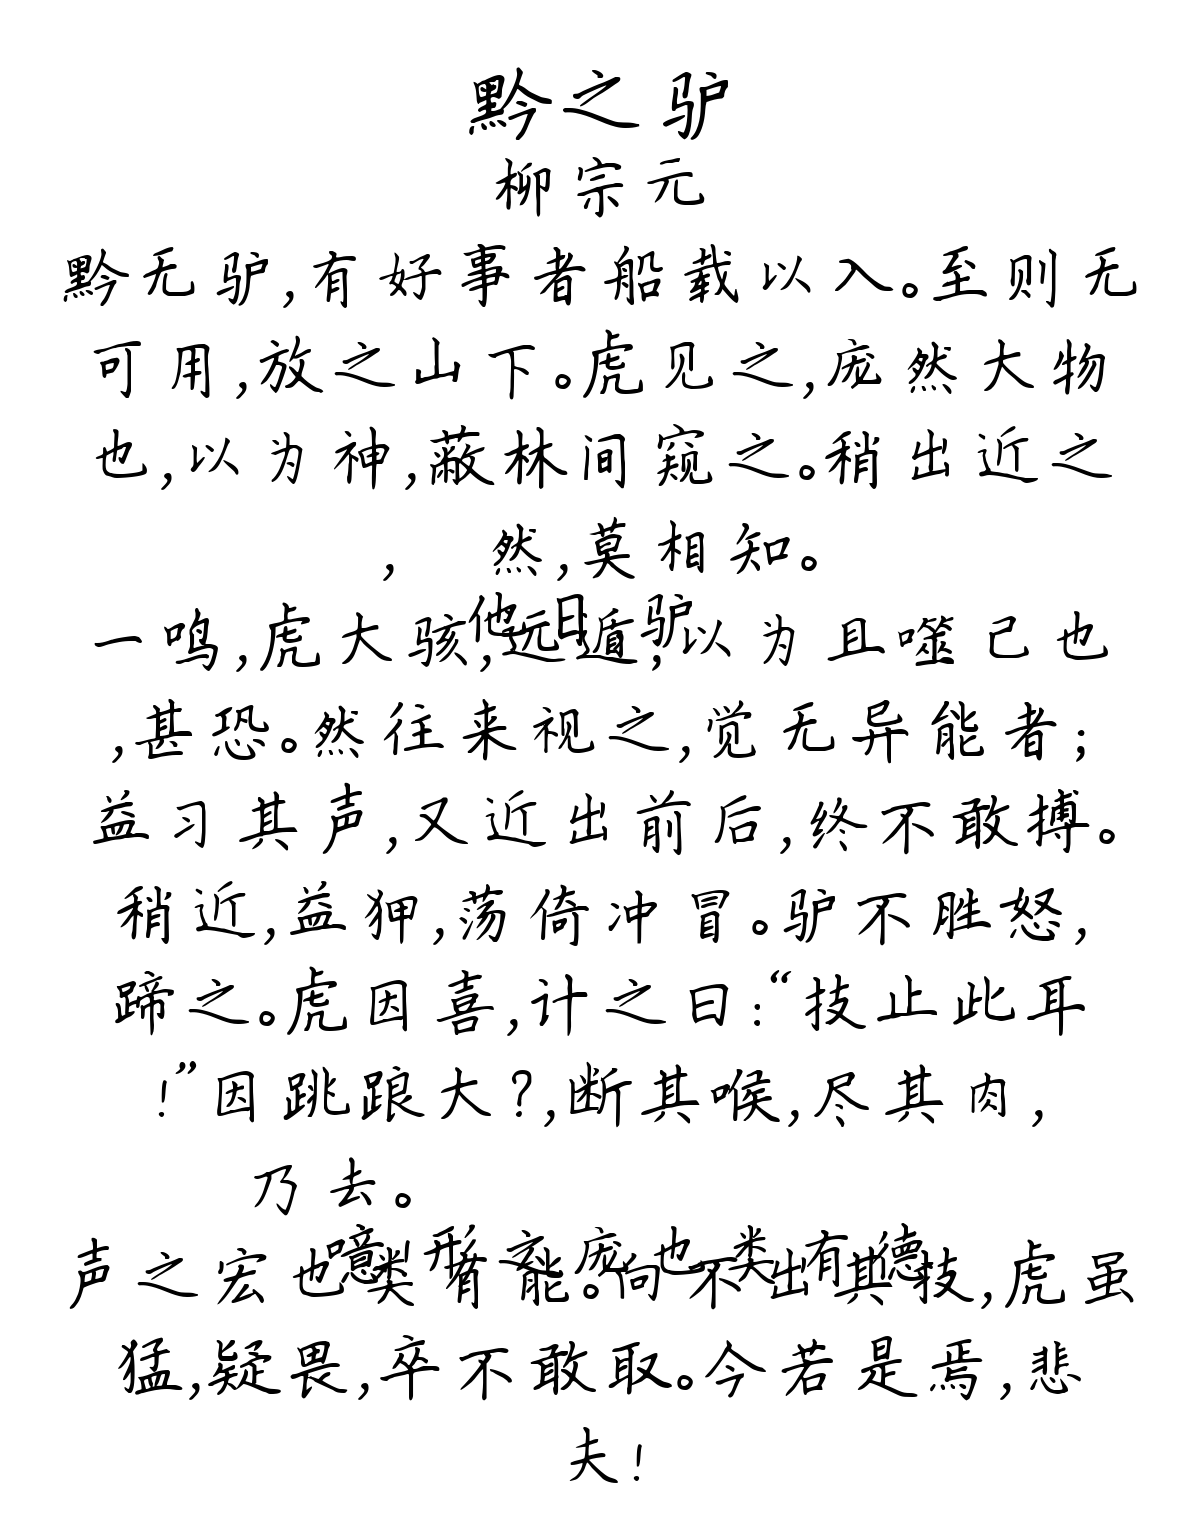 黔之驴
柳宗元
黔无驴,有好事者船载以入。至则无
可用,放之山下。虎见之,庞然大物
也,以为神,蔽林间窥之。稍出近之
, 然,莫相知。
他日 驴
一鸣,虎大骇,远遁,以为且噬己也
,甚恐。然往来视之,觉无异能者;
益习其声,又近出前后,终不敢搏。
稍近,益狎,荡倚冲冒。驴不胜怒,
蹄之。虎因喜,计之曰:“技止此耳
!”因跳踉大?,断其喉,尽其肉,
乃去。
噫!形之庞也 类有德
声之宏也 类有能。向不出其技,虎虽
猛,疑畏,卒不敢取。今若是焉,悲
夫!